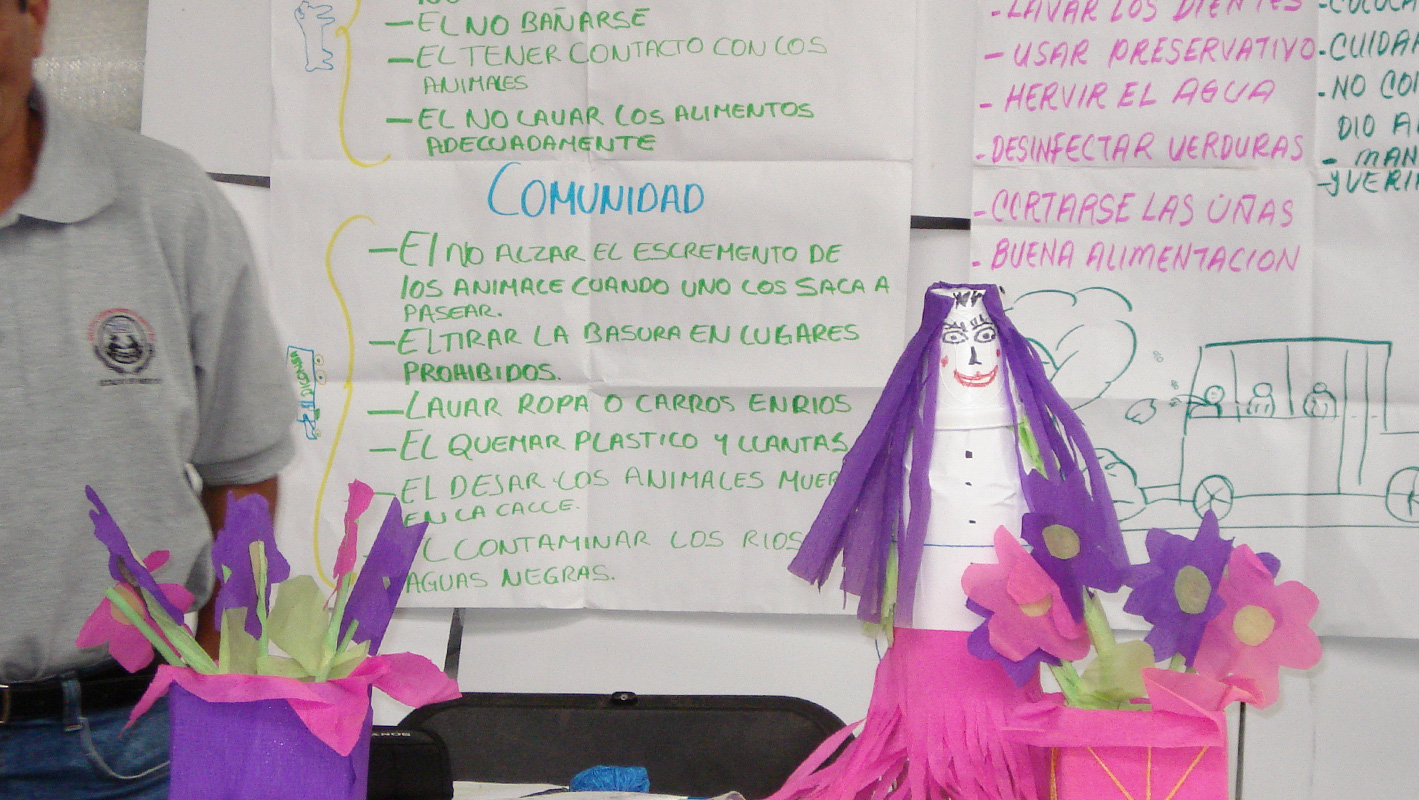 —EL NO BAÑARSE
—EL TENER CONTACTO CON LOS
ANIMALES
—EL NO LAVAR LOS ALIMENTOS
ADECUADAMENTE
COMUNIDAD
—El NO ALZAR EL ESCREMENTO DE
lOS ANIMALE CUANDO UNO LOS SACA A
PASEAR.
—EL TIRAR LA BASURA EN LUGARES
PROHIBIDOS.
—LAVAR ROPA O CARROS EN RIOS
—EL QUEMAR PLASTICO Y LLANTAS
EL DEJAR LOS ANIMALES MUER
EN LA CALLE.
CONTAMINAR LOS RIOS
AGUAS NEGRAS.
DICONSA
- LAVAR LOS DIENTES
- USAR PRESERVATIVO
- HERVIR EL AGUA
- DESINFECTAR VERDURAS
- CORTARSE LAS UÑAS
- BUENA ALIMENTACION
- CUIDAR
- NO